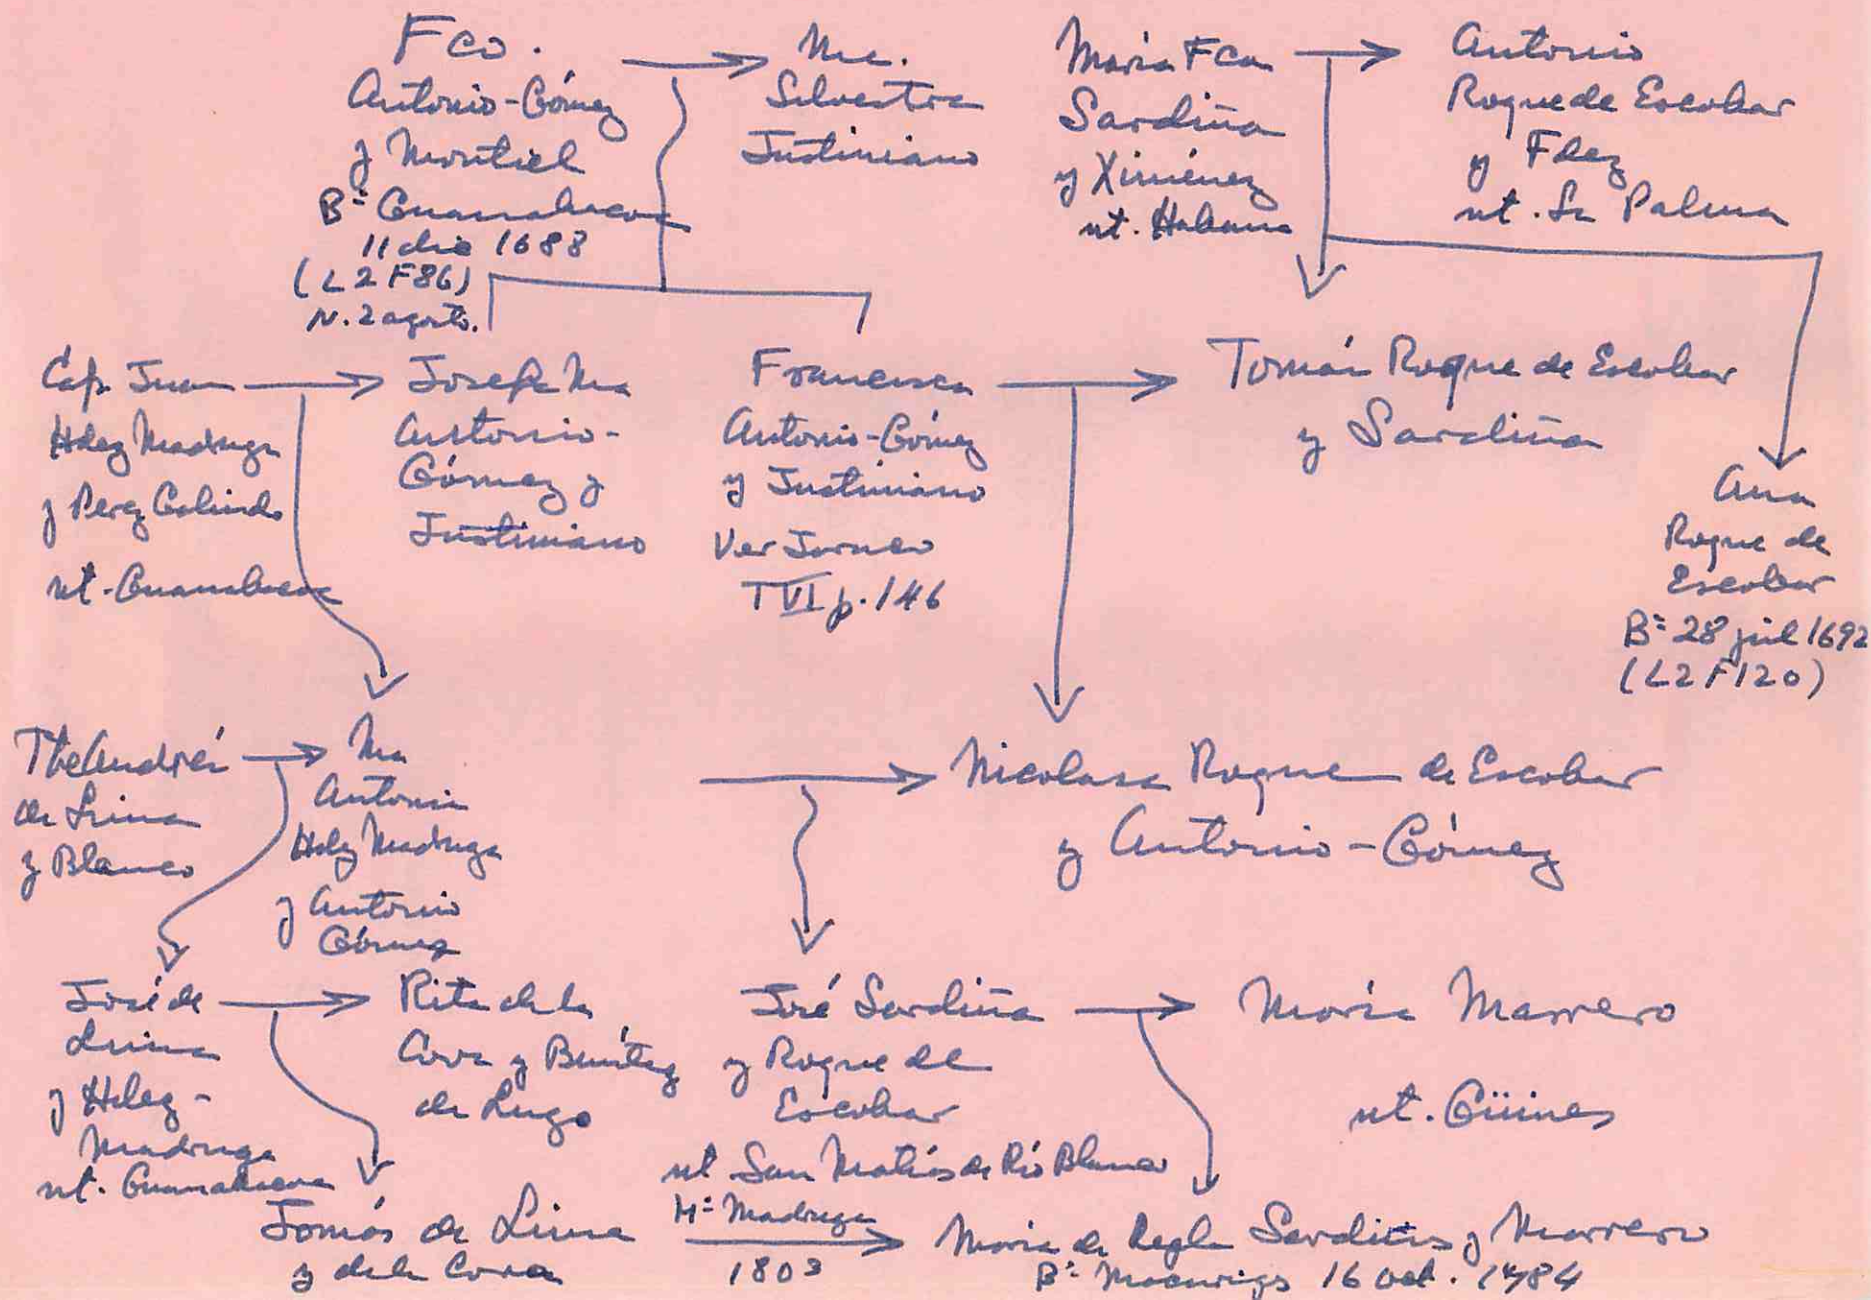 Fco.
Antonio-Gómez
y Montiel
B= Guanabacoa
11 dic 1688
(L2 F86)
N. 2 agosto.
Ma.
Silvestra
Justiniano
María Fca
Sardiña
y Ximénez
nt. Habana
Antonio
Roque de Escobar
y Fdez
nt. La Palma
Cap. Juan
Hdez Madruga
y Perez Galindo
nt. Guanabacoa
Josefa Ma
Antonio-
Gómez y
Justiniano
Francisca
Antonio-Gómez
y Justiniano
Ver Jaruco
TVI p. 146
Tomás Roque de Escobar
y Sardiña
Ana
Roque de
Escobar
B= 28 jul 1692
(L2 F120)
Tte Andrés
de Lima
y Blanco
Ma
Antonia
Hdez Madruga
y Antonio
Gómez
Nicolasa Roque de Escobar
y Antonio-Gómez
José de
Lima
y Hdez-
Madruga
nt. Guanabacoa
Rita de la
Cova y Benítez
de Lugo
José Sardiña
y Roque de
Escobar
nt San Matías de Río Blanco
María Marrero
nt. Güines
Tomás de Lima
y de la Cova
M= Madruga
1803
María de Regla Sardiñas y Marrero
B= Macuriges 16 oct. 1784